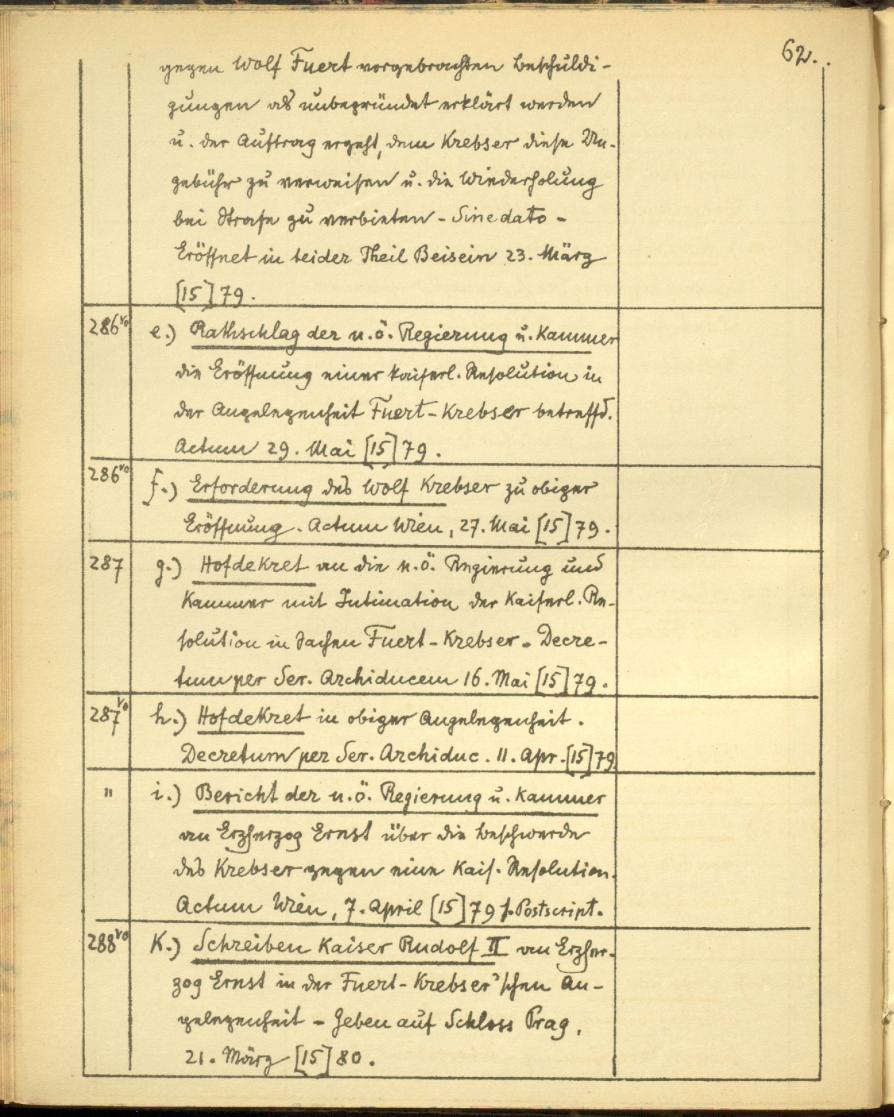 62.
gegen Wolf Fuert vorgebrachten Beschuldi-
gungen als unbegründet erklärt werden
u. der Auftrag ergeht, dem Krebser diese Un-
gebühr zu verweisen u. die Wiederholung
bei Strafe zu verbieten - Sine dato -
Eröffnet in beider Theil Beisein 23. März
[15]79.
286vo e.) Rathschlag der n.ö. Regierung u. Kammer
die Eröffnung einer kaiserl. Resolution in
der Angelegenheit Fuert-Krebser betreffd.
Actum 29. Mai [15]79.
286vo f.) Erforderung des Wolf Krebser zu obiger
Eröffnung. Actum Wien, 27. Mai [15]79.
287 g.) Hofdekret an die n.ö. Regierung und
Kammer mit Intimation der Kaiserl. Re-
solution in Sachen Fuert-Krebser. Decre-
tum per Ser. Archiducem 16. Mai [15]79.
287vo h.) Hofdekret in obiger Angelegenheit.
Decretum per Ser. Archiduc. 11. Apr. [15]79
" i.) Bericht der n.ö. Regierung u. Kammer
an Erzherzog Ernst über die Beschwerde
des Krebser gegen eine Kais. Resolution.
Actum Wien, 7. April [15]79 Postscript.
288vo K.) Schreiben Kaiser Rudolf II an Erzher-
zog Ernst in der Fuert-Krebser'schen An-
gelegenheit - Geben auf Schloss Prag,
21. März [15]80.